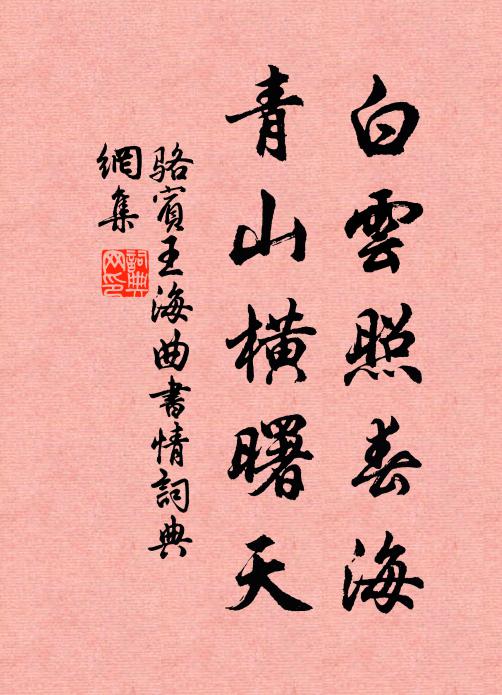 白雲照春海
青山橫曙天
駱賓王海曲書情詞典
網集
詞典
网印